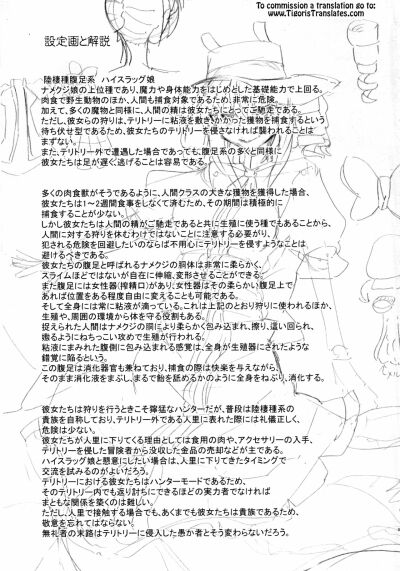 To commission a translation go to:
www.TigorisTranslates.com
設定画と解説
陸棲種腹足系 ハイスラッグ娘
ナメクジ娘の上位種であり、魔力や身体能力をはじめとした基礎能力で上回る。
肉食で野生動物のほか、人間も捕食対象であるため、非常に危険。
加えて、多くの魔物と同様に、人間の精は彼女たちにとってご馳走である。
ただし、彼女らの狩りは、テリトリーに粘液を敷き、かかった獲物を捕食するという
待ち伏せ型であるため、彼女たちのテリトリーを侵さなければ襲われることは
まずない。
また、テリトリー外で遭遇した場合であっても、腹足系の多くと同様に
彼女たちは足が遅く逃げることは容易である。
多くの肉食獣がそうであるように、人間クラスの大きな獲物を獲得した場合、
彼女たちは1~2週間食事をしなくて済むため、その期間は積極的に
捕食することが少ない。
しかし彼女たちは人間の精がご馳走であると共に生殖に使う種でもあることから、
人間に対する狩りを休むわけではないことに注意する必要があり、
犯される危険を回避したいのならば不用心にテリトリーを侵すようなことは
避けるべきである。
彼女たちの腹足と呼ばれるナメクジの胴体は非常に柔らかく、
スライムほどではないが自在に伸縮、変形させることができる。
また腹足には女性器(搾精口)があり、女性器はその柔らかい腹足上で
あれば位置をある程度自由に変えることも可能である。
そして全身には常に粘液が滴っている。これは上記のとおり狩りに使われるほか、
生殖や、周囲の環境から体を守る役割もある。
捉えられた人間はナメクジの胴により柔らかく包み込まれ、擦り、這い回られ、
嬲るようにねちっこい攻めで生殖が行われる。
粘液にまみれた腹側に包み込まれる感覚は、全身が生殖器にされたような
錯覚に陥るという。
この腹足は消化器官も兼ねており、捕食の際は快楽を与えながら、
そのまま消化液をまぶし、まるで飴を舐めるかのように全身をねぶり、消化する。
彼女たちは狩りを行うときこそ獰猛なハンターだが、普段は陸棲種系の
貴族を自称しており、テリトリー外である人里に表れた際には礼儀正しく、
危険は少ない。
彼女たちが人里に下りてくる理由としては食用の肉や、アクセサリーの入手、
テリトリーを侵した冒険者から没収した金品の売却などが主である。
ハイスラッグ娘と懇意にしたい場合は、人里に下りてきたタイミングで
交流を試みるのがよいだろう。
テリトリーにおける彼女たちはハンターモードであるため、
そのテリトリー内でも返り討ちにできるほどの実力者でなければ
まともな関係を築くのは難しい。
ただし、人里で接触する場合でも、あくまでも彼女たちは貴族であるため、
敬意を忘れてはならない。
無礼者の末路はテリトリーに侵入した愚か者とそう変わらないだろう。